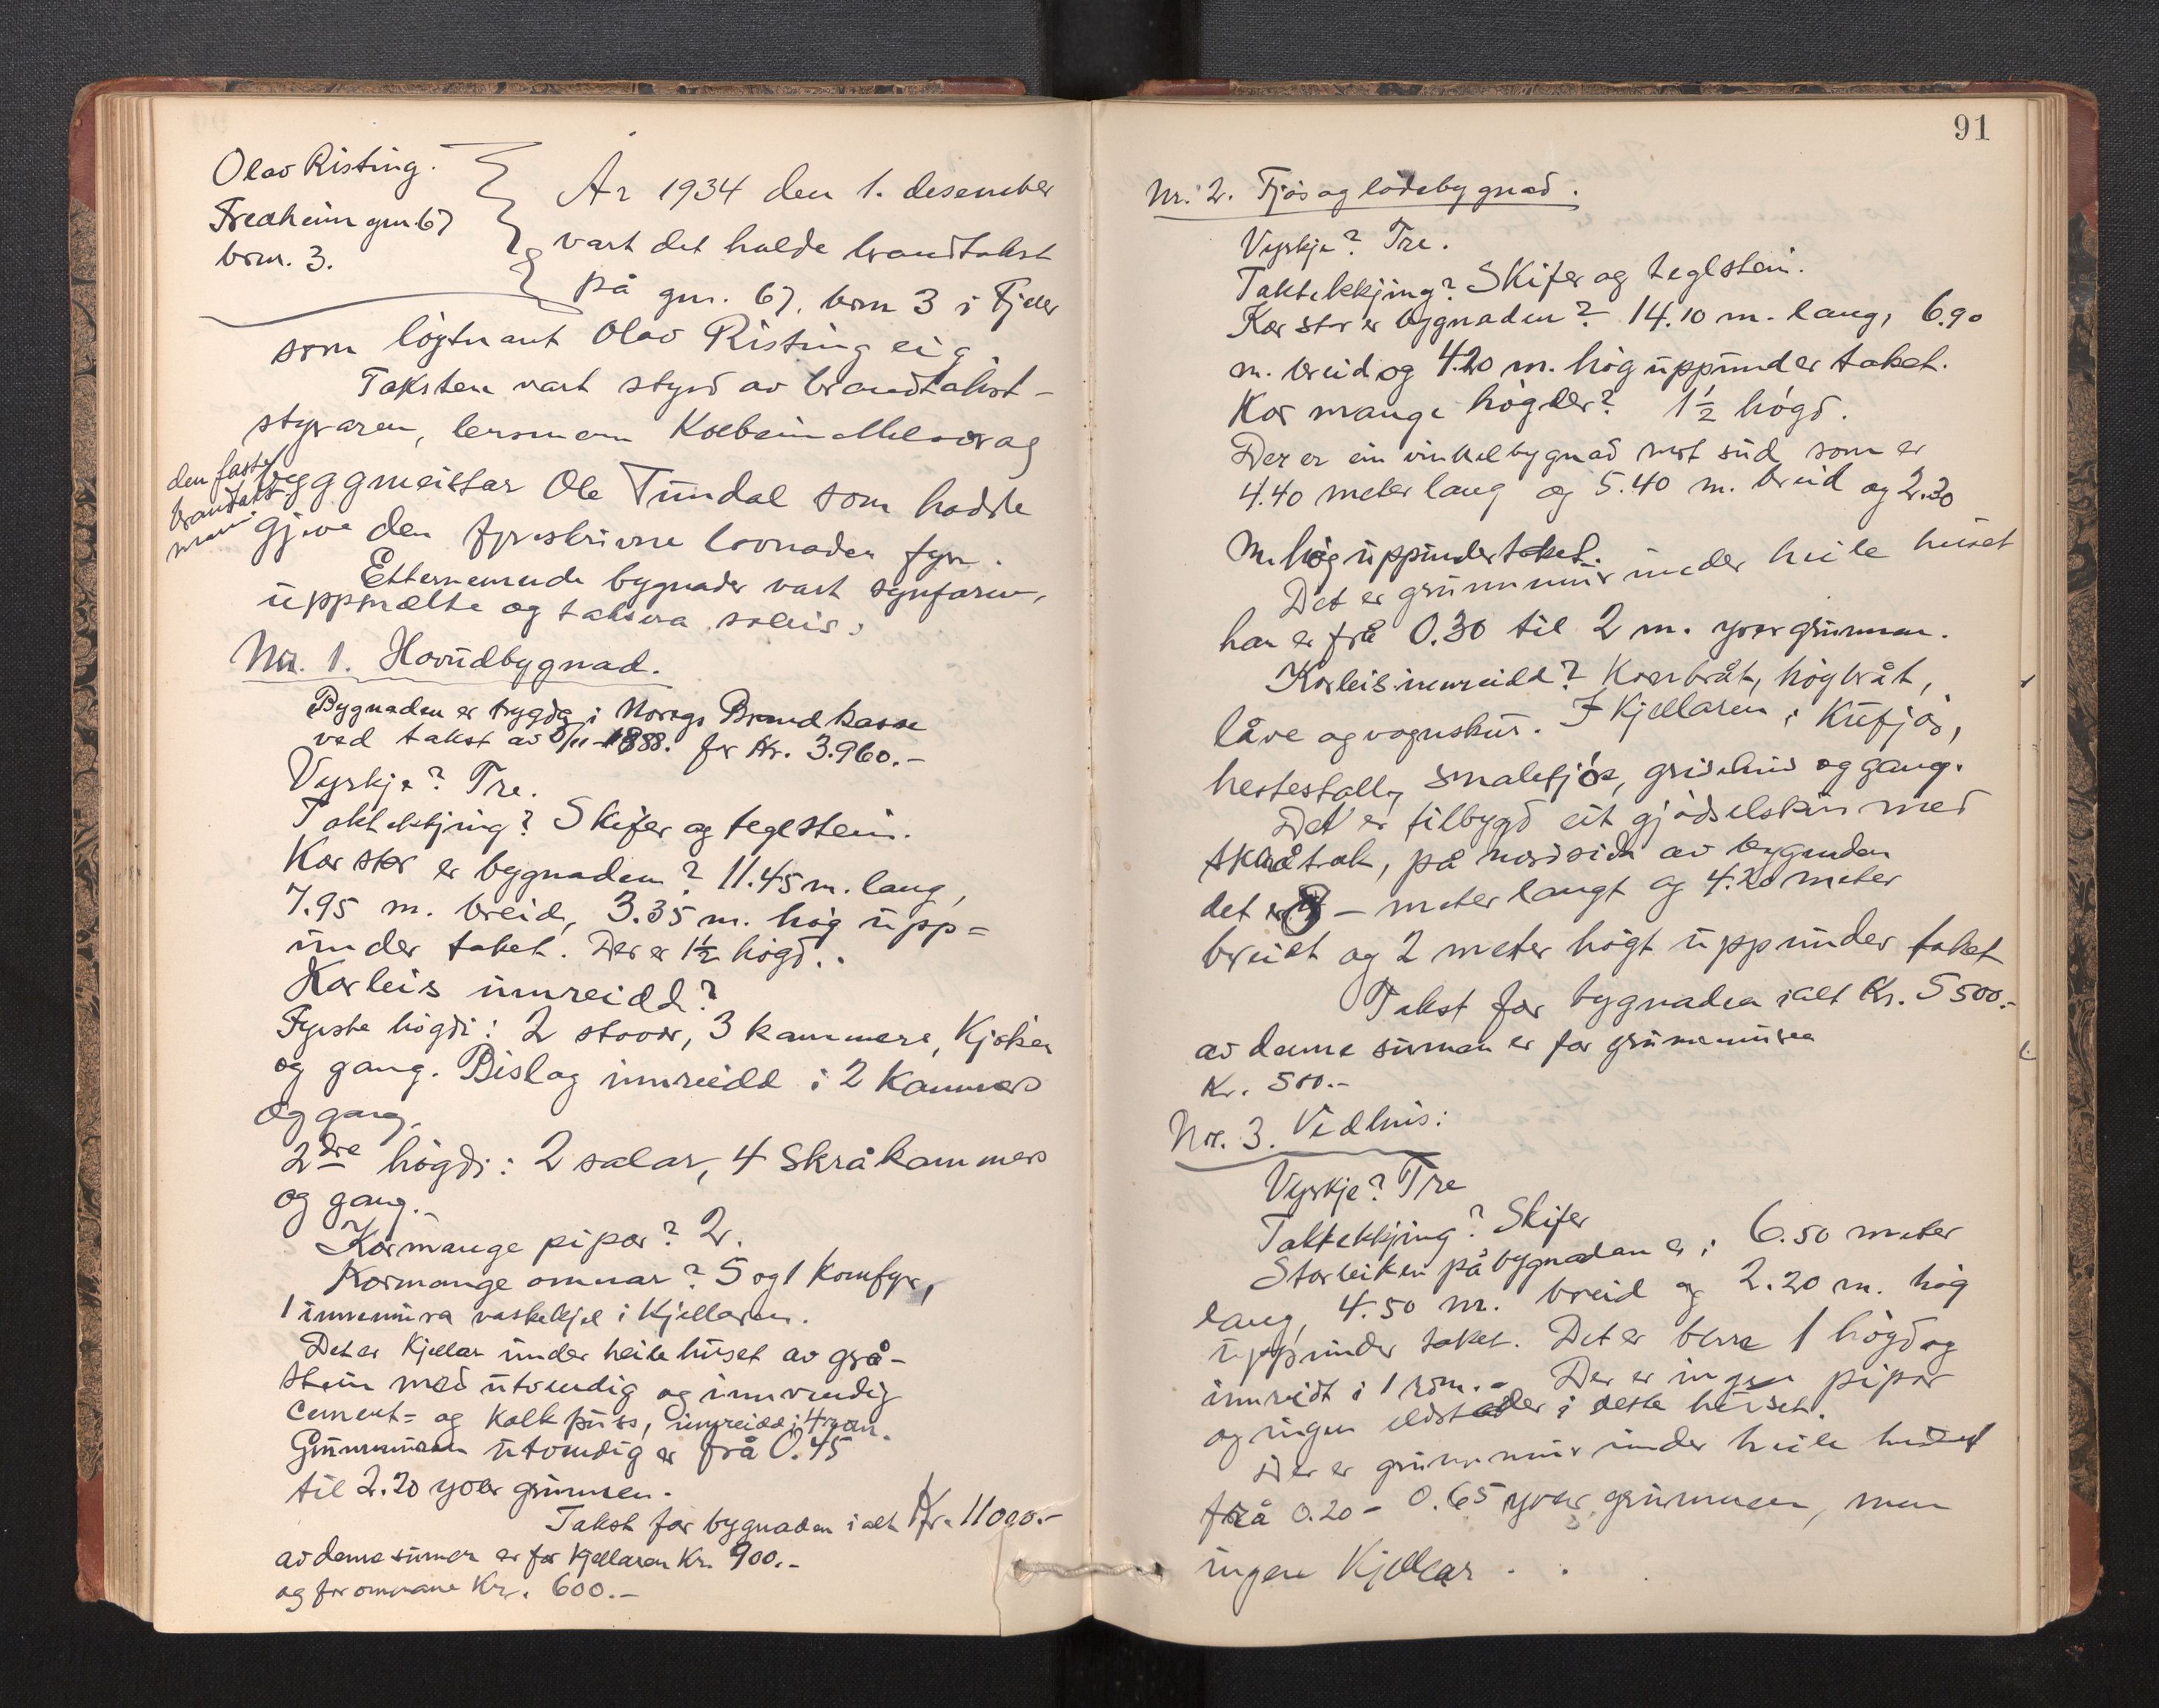 Olav Risting.
Fredheim gnr. 67
brnr. 3.
År 1934 den 1. desember
vart det halde brandtakst
på gnr. 67, brnr 3 i Fjær
som løgtnant Olav Risting eig.
Taksten vart styrd av brandtakst-
styraren, lensmann Kolbein Melvær og
den faste
brandtakst
mann
byggmeistar Ole Tundal som hadde
gjeve den fyreskrivne lovnaden fyrr.
Etternemnde bygnader vart synfaren,
uppmælte og taksera soleis:
Nr. 1. Hovudbygnad.
Bygnaden er trygda i Noregs Brandkasse
ved takst av 5/11-1888. for Kr. 3.960.-
Vyrkje? Tre.
Taktekkjing? Skifer og teglstein.
Kor stor er bygnaden? 11.45 m. lang,
7.95 m. breid, 3.35 m. høg upp=
under taket. Der er 1½ høgd.
Korleis innreidd?
Fyrste høgdi: 2 stover, 3 kammers, Kjøken
og gang. Bislag innreidd i 2 Kammers
og gang.
2dre høgdi: 2 salar, 4 Skråkammers
og gang.
Kormange pipor? 2.
Kormange omnar? 5 og 1 Komfyr,
1 innmura vaskekjel i Kjellaren.
Det er Kjellar under heile huset av grå-
stein med utvendig og innvendig
Cement= og Kalkpuss, innreidd i 4 rom.
Grunnmuren utvendig er frå 0.45
til 2.20 yver grunnen.
Takst for bygnaden i alt Kr. 11000.-
av denne sumen er for Kjellaren Kr. 900.-
og for omnane Kr. 600.-
91
Nr. 2. Fjøs og lødebygnad.
Vyrkje? Tre.
Taktekkjing? Skifer og teglstein.
Kor stor er bygnaden? 14.10 m. lang, 6.90
m. breid og 4.20 m. høg uppunder taket.
Kor mange høgder? 1½ høgd.
Der er ein vinkelbygnad mot sud som er
4.40 meter lang og 5.40 m. breid og 2.30
m. høg uppunder taket.
Det er grunnmur under heile huset
han er frå 0.30 til 2 m. yver grunnen.
Korleis innreidd? Kornbråt, høybråt,
låve og vognskur. I Kjellaren: Kufjøs,
hestestall, smalefjøs, grisehus og gang.
Det er tilbygd eit gjødselskur med
skråtak, på nordsida av bygnaden
det er 8 - meter langt og 4.20 meter
breidt og 2 meter høgt uppunder taket
Takst for bygnaden ialt Kr. 5500.-
av denne sumen er for grunnmuren
Kr. 500.-
Nr. 3. Vedhus:
Vyrkje? Tre
Taktekkjing? Skifer
Storleiken på bygnaden er: 6.50 meter
lang, 4.50 m. breid og 2.20 m. høg
uppunder taket. Det er berre 1 høgd og
innreidt i 1 rom. - Der er ingen pipor
og ingen eldstader i dette huset.
Der er grunnmur under heile huset
frå 0.20 - 0.65 yver grunnen, men
ingen Kjellar.